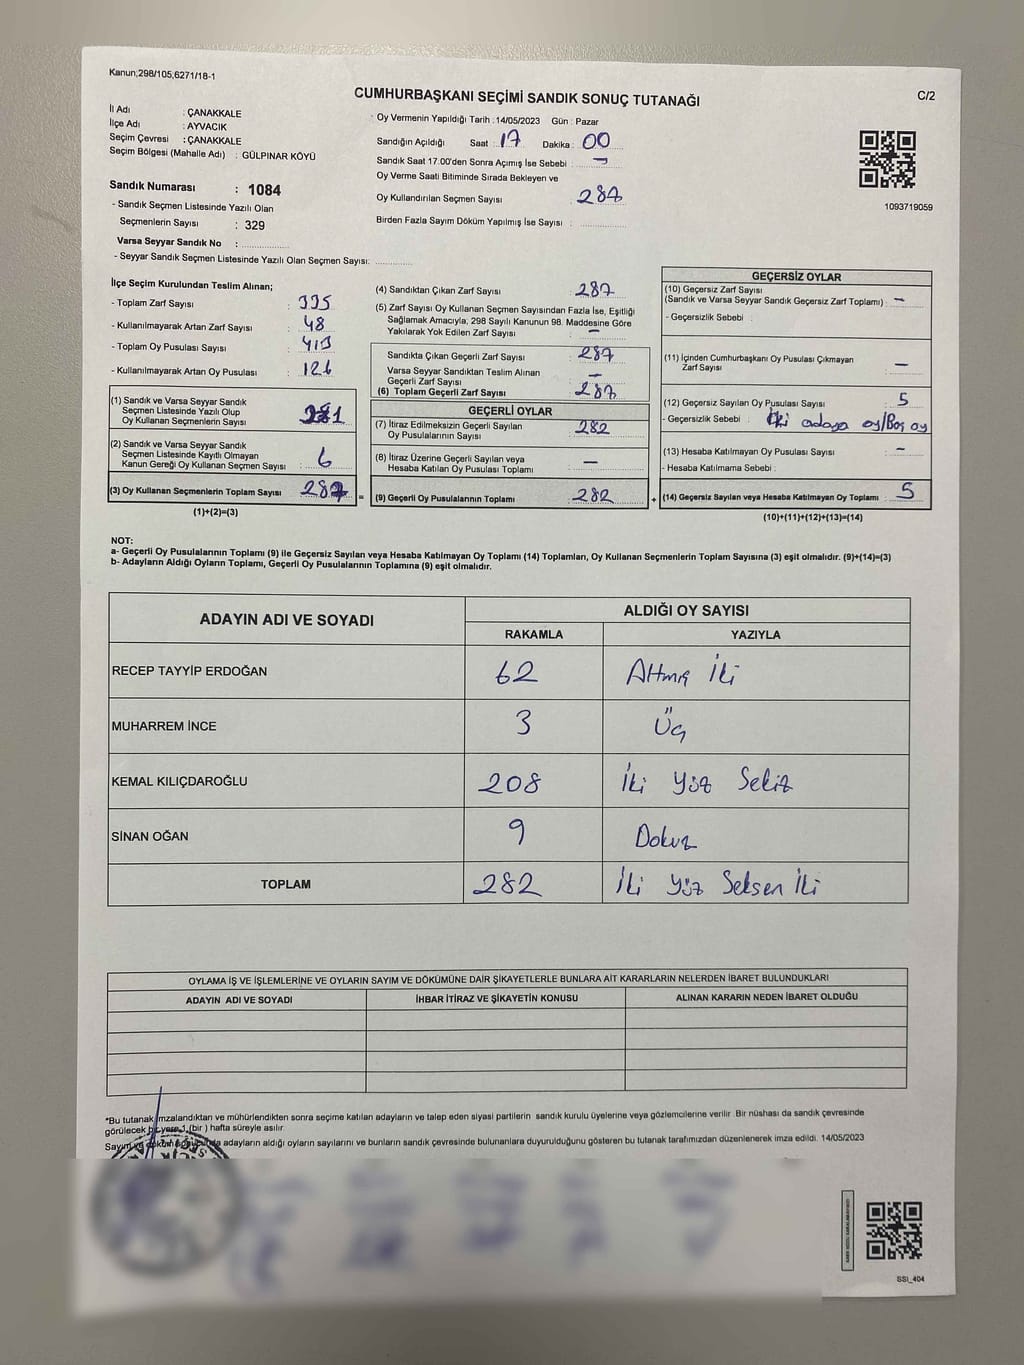 Kanun;298/105,6271/18-1
C/2
CUMHURBAŞKANI SEÇİMİ SANDIK SONUÇ TUTANAĞI
İl Adı : ÇANAKKALE
İlçe Adı : AYVACIK
Seçim Çevresi : ÇANAKKALE
Seçim Bölgesi (Mahalle Adı) : GÜLPINAR KÖYÜ
Sandık Numarası : 1084
- Sandık Seçmen Listesinde Yazılı Olan
Seçmenlerin Sayısı : 329
Varsa Seyyar Sandık No :
- Seyyar Sandık Seçmen Listesinde Yazılı Olan Seçmen Sayısı:
Oy Vermenin Yapıldığı Tarih : 14/05/2023 Gün : Pazar
Sandığın Açıldığı Saat : 17 Dakika : 00
Sandık Saat 17.00'den Sonra Açımış İse Sebebi : -
Oy Verme Saati Bitiminde Sırada Bekleyen ve
Oy Kullandırılan Seçmen Sayısı : 287
Birden Fazla Sayım Döküm Yapılmış İse Sayısı :
1093719059
İlçe Seçim Kurulundan Teslim Alınan;
- Toplam Zarf Sayısı : 335
- Kullanılmayarak Artan Zarf Sayısı : 48
- Toplam Oy Pusulası Sayısı : 413
- Kullanılmayarak Artan Oy Pusulası : 126
(1) Sandık ve Varsa Seyyar Sandık
Seçmen Listesinde Yazılı Olup
Oy Kullanan Seçmenlerin Sayısı : 281
(2) Sandık ve Varsa Seyyar Sandık
Seçmen Listesinde Kayıtlı Olmayan
Kanun Gereği Oy Kullanan Seçmen Sayısı : 6
(3) Oy Kullanan Seçmenlerin Toplam Sayısı : 287 =
(1)+(2)=(3)
(4) Sandıktan Çıkan Zarf Sayısı : 287
(5) Zarf Sayısı Oy Kullanan Seçmen Sayısından Fazla İse, Eşitliği
Sağlamak Amacıyla, 298 Sayılı Kanunun 98. Maddesine Göre
Yakılarak Yok Edilen Zarf Sayısı : -
Sandıkta Çıkan Geçerli Zarf Sayısı : 287
Varsa Seyyar Sandıktan Teslim Alınan
Geçerli Zarf Sayısı : -
(6) Toplam Geçerli Zarf Sayısı : 287
GEÇERLİ OYLAR
(7) İtiraz Edilmeksizin Geçerli Sayılan
Oy Pusulalarının Sayısı : 282
(8) İtiraz Üzerine Geçerli Sayılan veya
Hesaba Katılan Oy Pusulası Toplamı : -
(9) Geçerli Oy Pusulalarının Toplamı : 282 +
GEÇERSİZ OYLAR
(10) Geçersiz Zarf Sayısı
(Sandık ve Varsa Seyyar Sandık Geçersiz Zarf Toplamı) : -
- Geçersizlik Sebebi :
(11) İçinden Cumhurbaşkanı Oy Pusulası Çıkmayan
Zarf Sayısı : -
(12) Geçersiz Sayılan Oy Pusulası Sayısı : 5
- Geçersizlik Sebebi : İki adaya oy/Boş oy
(13) Hesaba Katılmayan Oy Pusulası Sayısı : -
- Hesaba Katılmama Sebebi :
(14) Geçersiz Sayılan veya Hesaba Katılmayan Oy Toplamı : 5
(10)+(11)+(12)+(13)=(14)
NOT:
a- Geçerli Oy Pusulalarının Toplamı (9) ile Geçersiz Sayılan veya Hesaba Katılmayan Oy Toplamı (14) Toplamları, Oy Kullanan Seçmenlerin Toplam Sayısına (3) eşit olmalıdır. (9)+(14)=(3)
b- Adayların Aldığı Oyların Toplamı, Geçerli Oy Pusulalarının Toplamına (9) eşit olmalıdır.
ADAYIN ADI VE SOYADI
ALDIĞI OY SAYISI
RAKAMLA YAZIYLA
RECEP TAYYİP ERDOĞAN 62 Altmış İki
MUHARREM İNCE 3 Üç
KEMAL KILIÇDAROĞLU 208 İki Yüz Sekiz
SİNAN OĞAN 9 Dokuz
TOPLAM 282 İki Yüz Seksen İki
OYLAMA İŞ VE İŞLEMLERİNE VE OYLARIN SAYIM VE DÖKÜMÜNE DAİR ŞİKAYETLERLE BUNLARA AİT KARARLARIN NELERDEN İBARET BULUNDUKLARI
ADAYIN ADI VE SOYADI İHBAR İTİRAZ VE ŞİKAYETİN KONUSU ALINAN KARARIN NEDEN İBARET OLDUĞU
*Bu tutanak imzalandıktan ve mühürlendikten sonra seçime katılan adayların ve talep eden siyasi partilerin sandık kurulu üyelerine veya gözlemcilerine verilir. Bir nüshası da sandık çevresinde
görülecek bir yere 1 (bir) hafta süreyle asılır.
adayların aldığı oyların sayılarını ve bunların sandık çevresinde bulunanlara duyurulduğunu gösteren bu tutanak tarafımızdan düzenlenerek imza edildi. 14/05/2023
SSİ_404